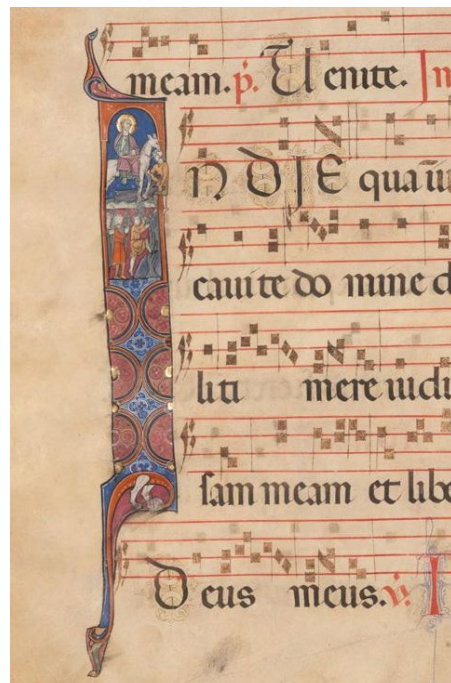 meam. p̄. Uenite. In
N DIE qua īu
cauite do mine d
liti mere iudi
sam meam et libe
Deus meus. v̄. I